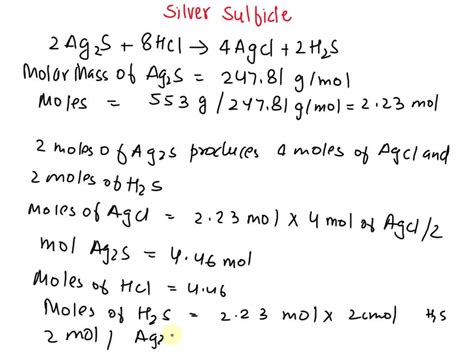 Silver Sulficle
2Ag₂S + 8HCl → 4Agcl + 2H₂S
Molar Mass of Ag₂S = 247.81 g/mol
Moles = 553 g / 247.81 g/mol = 2.23 mol
2 moles of Ag₂S produces 4 moles of Agcl and
2 moles of H₂S
Moles of Agcl = 2.23 mol × 4 mol of Agcl/2
mol Ag₂S = 4.46 mol
Moles of HCl = 4.46
Moles of H₂S = 2.23 mol × 2 cmol H₂s
2 mol / Ag₂